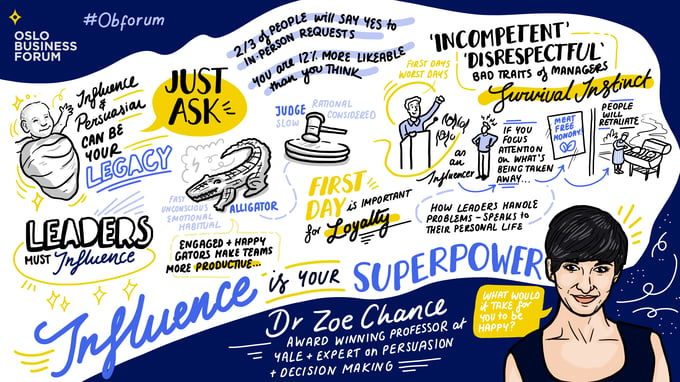 OSLO
BUSINESS
FORUM
#Obforum
2/3 of PEOPLE will SAY YES to
IN-PERSON REQUESTS
YOU ARE 12% MORE LIKEABLE
than you THINK
'INCOMPETENT'
'DISRESPECTFUL'
BAD TRAITS of MANAGERS
Survival Instinct
Influence
& Persuasion
CAN BE
YOUR
LEGACY
JUST
ASK
JUDGE
SLOW
RATIONAL
CONSIDERED
ALLIGATOR
FAST
UNCONSCIOUS
EMOTIONAL
HABITUAL
ENGAGED + HAPPY
GATORS MAKE TEAMS
MORE PRODUCTIVE...
FIRST DAYS
WORST DAYS
as
an
Influencer
IF YOU
FOCUS
ATTENTION
ON WHAT'S
BEING TAKEN
AWAY...
MEAT
FREE
MONDAY
PEOPLE
WILL
RETALIATE
FIRST
DAY is IMPORTANT
for Loyalty
HOW LEADERS HANDLE
PROBLEMS - SPEAKS to
THEIR PERSONAL LIFE
LEADERS
MUST Influence
Influence is YOUR SUPERPOWER
Dr Zoe Chance
AWARD WINNING PROFESSOR at
YALE + EXPERT on PERSUASION
+ DECISION MAKING
WHAT WOULD
it TAKE for
YOU to be
HAPPY?